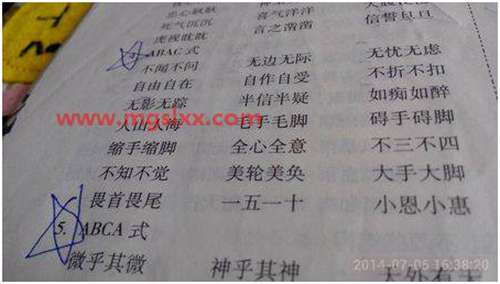 忠心耿耿
死气沉沉 喜气洋洋
虎视眈眈 言之凿凿 信誓旦旦
4. ABAC 式
不闻不问 无边无际 无忧无虑
自由自在 自作自受 不折不扣
无影无踪 半信半疑 如痴如醉
人山人海 毛手毛脚 碍手碍脚
缩手缩脚 全心全意 不三不四
不知不觉 美轮美奂 大手大脚
畏首畏尾 一五一十 小恩小惠
5. ABCA 式
微乎其微 神乎其神 天外有天
www.mgslxx.com
2014-07-05 16:38:20